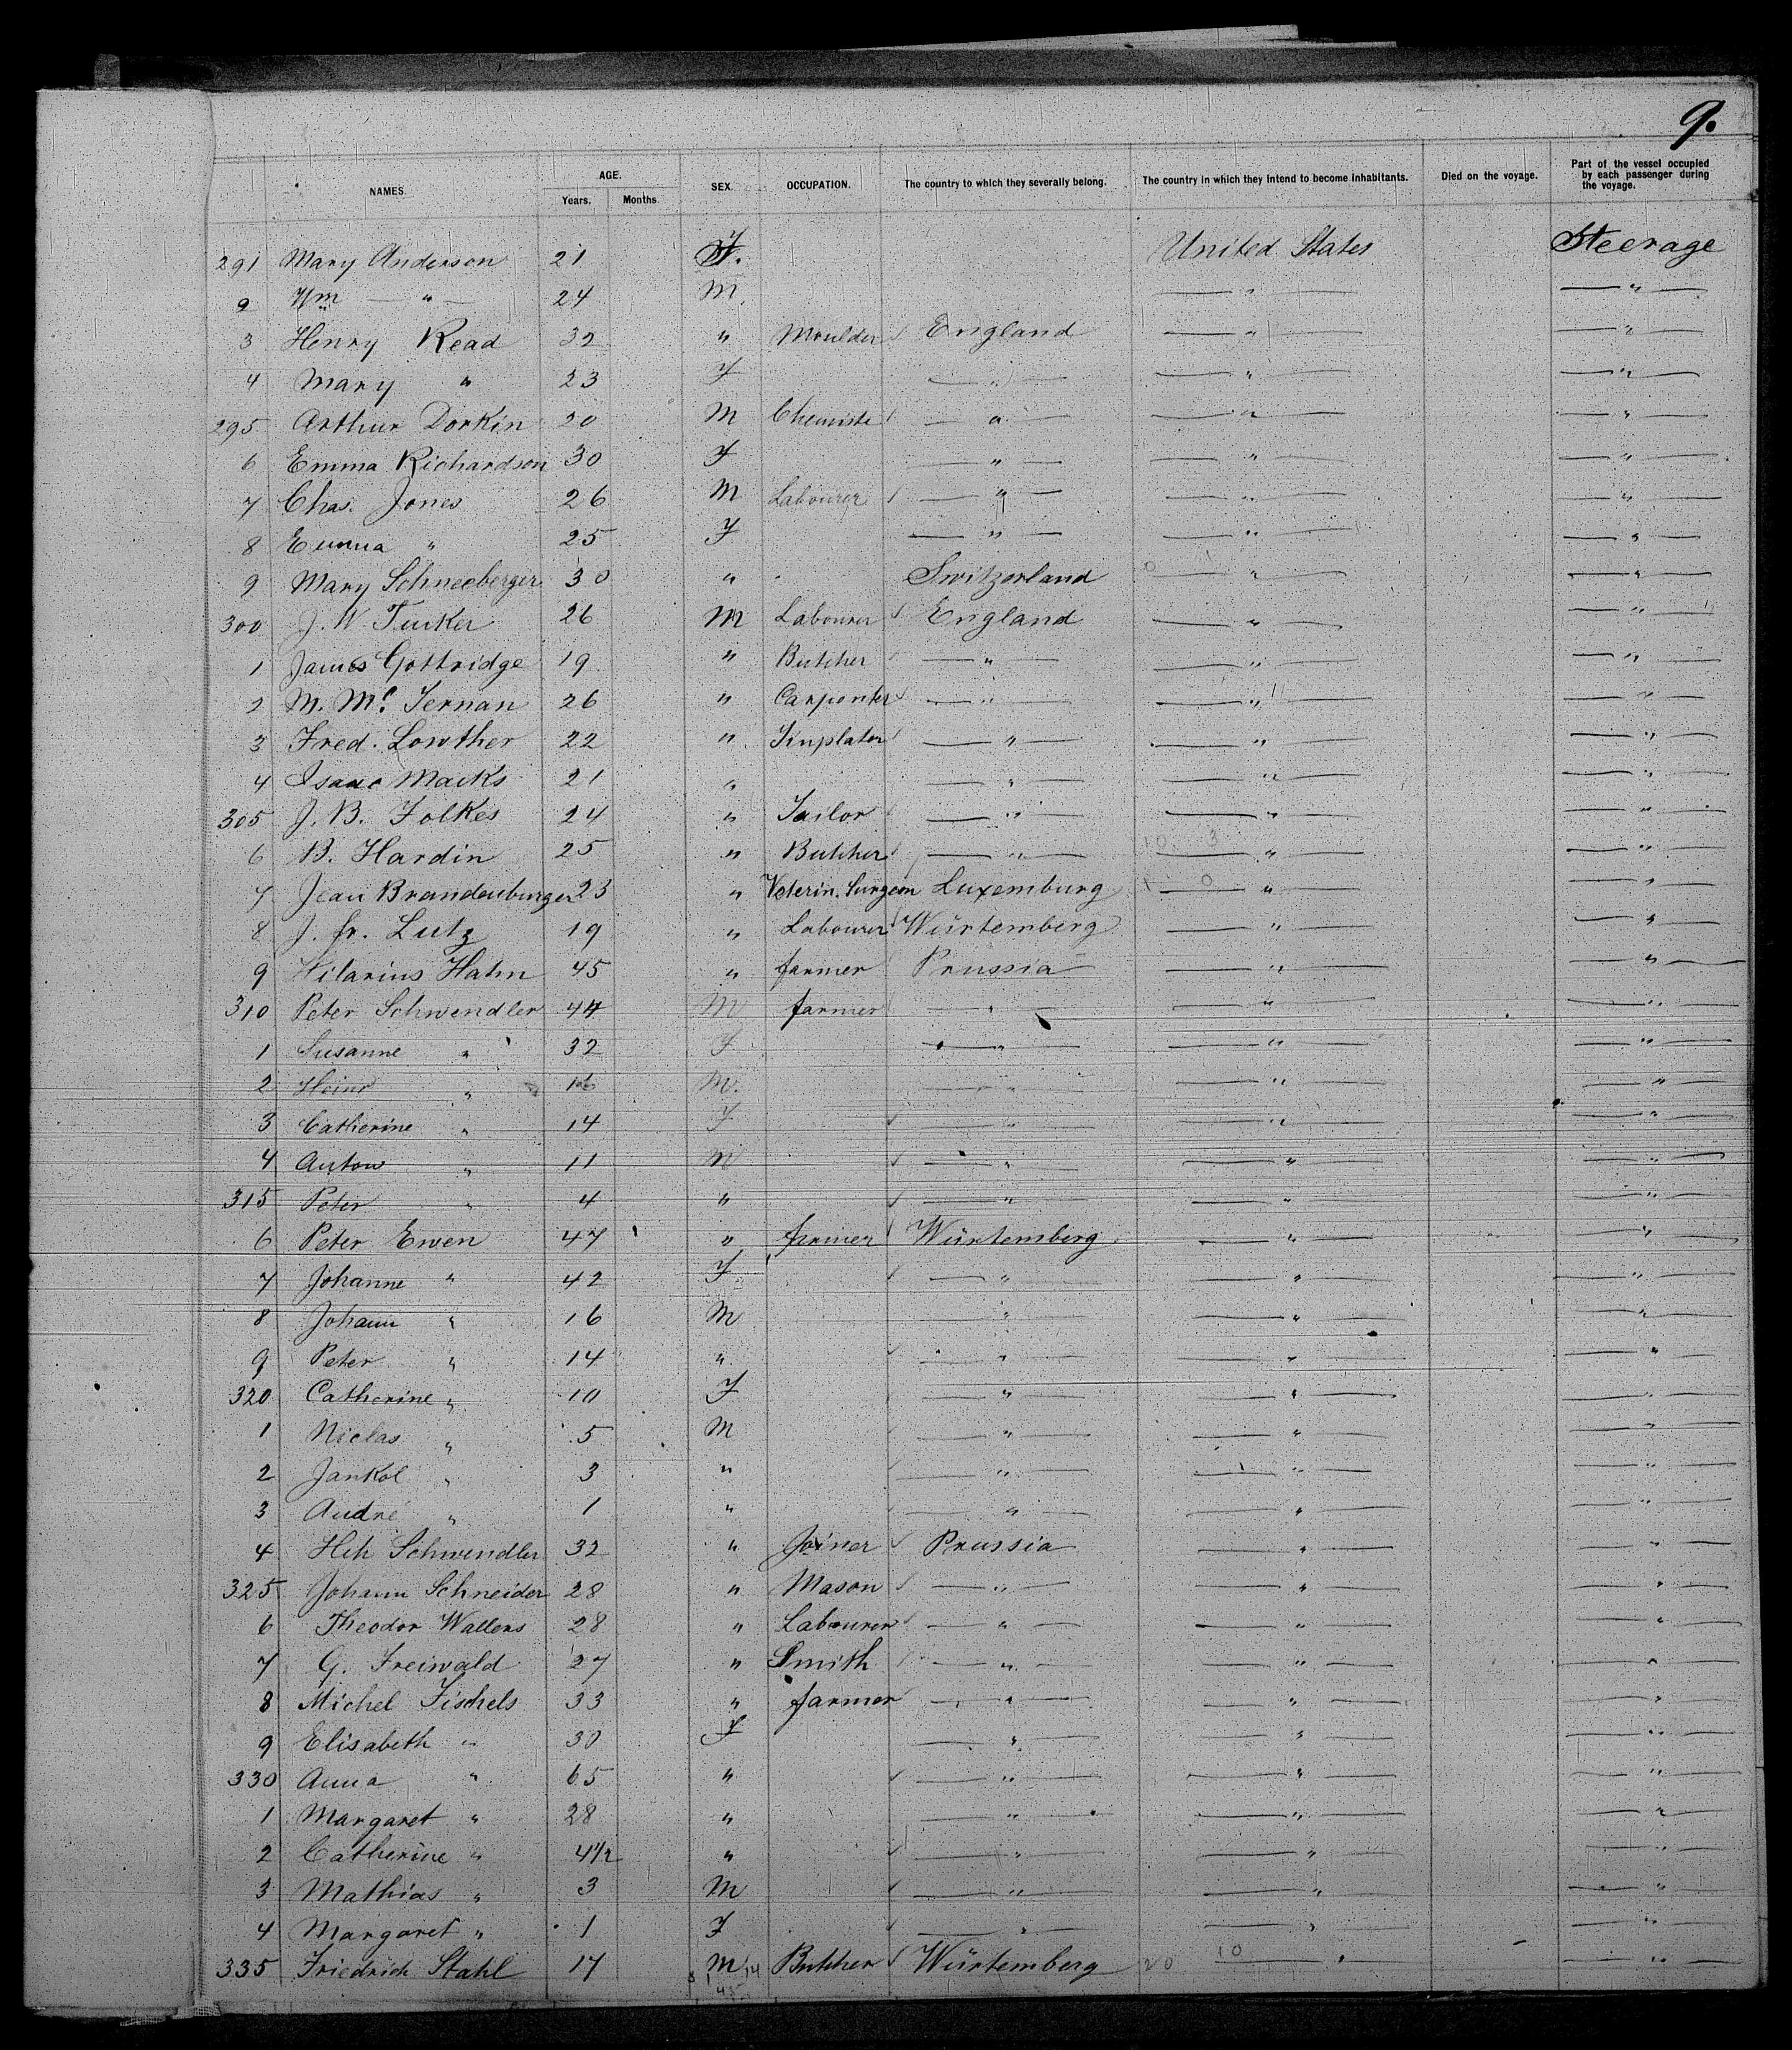 9.
NAMES. AGE. Years. Months. SEX. OCCUPATION. The country to which they severally belong. The country in which they intend to become inhabitants. Died on the voyage. Part of the vessel occupied by each passenger during the voyage.
291 Mary Anderson 21 F. United States Steerage
2 Wm — " — 24 M. — " — — " —
3 Henry Read 32 " Moulder England — " — — " —
4 Mary " 23 F — " — — " — — " —
295 Arthur Dorkin 20 M Chemiste — " — — " — — " —
6 Emma Richardson 30 F — " — — " — — " —
7 Chas. Jones 26 M Labourer — " — — " — — " —
8 Emma " 25 F — " — — " — — " —
9 Mary Schneeberger 30 " Switzerland — " — — " —
300 J. W. Tucker 26 M Labourer England — " — — " —
1 James Gottridge 19 " Butcher — " — — " — — " —
2 M. Mc. Ternan 26 " Carpenter — " — — " — — " —
3 Fred. Lowther 22 " Tinplater — " — — " — — " —
4 Isaac Macks 21 " — " — — " — — " —
305 J. B. Folkes 24 " Tailor — " — — " — — " —
6 B. Hardin 25 " Butcher — " — — " — — " —
7 Jean Brandenburger 23 " Veterin. Surgeon Luxemburg — " — — " —
8 J. fr. Lutz 19 " Labourer Würtemberg — " — — " —
9 Hilarius Hahn 45 " farmer Prussia — " — — " —
310 Peter Schwendler 44 M farmer — " — — " — — " —
1 Susanne " 32 F — " — — " — — " —
2 Heinr " 16 M. — " — — " — — " —
3 Catherine " 14 F — " — — " — — " —
4 Anton " 11 M — " — — " — — " —
315 Peter " 4 " — " — — " — — " —
6 Peter Ewen 47 " farmer Würtemberg — " — — " —
7 Johanne " 42 F — " — — " — — " —
8 Johann " 16 M — " — — " — — " —
9 Peter " 14 " — " — — " — — " —
320 Catherine " 10 F — " — — " — — " —
1 Niclas " 5 M — " — — " — — " —
2 Jankol " 3 " — " — — " — — " —
3 André " 1 " — " — — " — — " —
4 Hch Schwendler 32 " Joiner Prussia — " — — " —
325 Johann Schneider 28 " Mason — " — — " — — " —
6 Theodor Wallers 28 " Labourer — " — — " — — " —
7 G. Freiwald 27 " Smith — " — — " — — " —
8 Michel Fischels 33 " farmer — " — — " — — " —
9 Elisabeth " 30 F — " — — " — — " —
330 Anna " 65 " — " — — " — — " —
1 Margaret " 28 " — " — — " — — " —
2 Catherine " 4 1/2 " — " — — " — — " —
3 Mathias " 3 M — " — — " — — " —
4 Margaret " 1 F — " — — " — — " —
335 Friedrich Stahl 17 M Butcher Würtemberg 20 10 — " — — " —